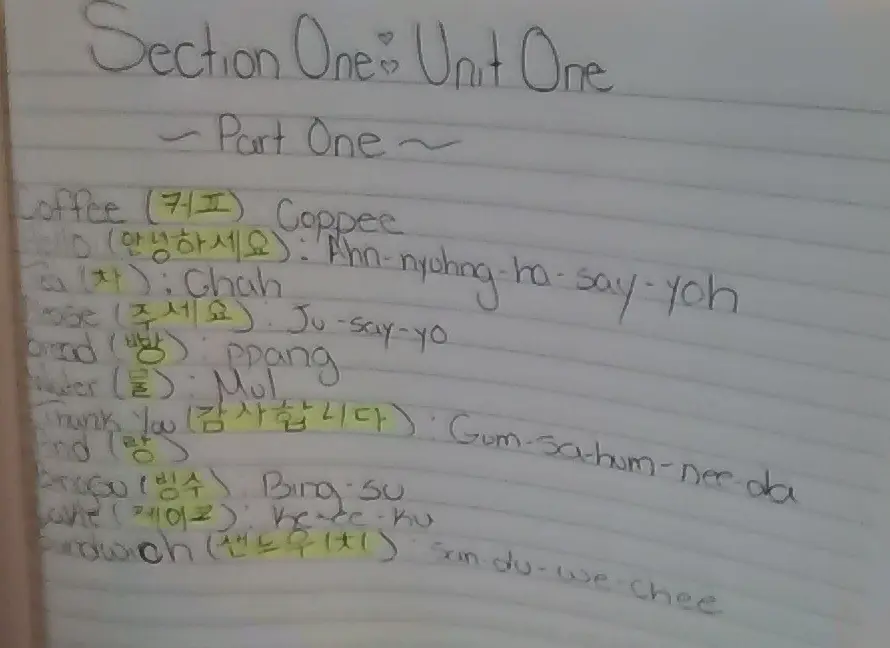 Section One: Unit One
~ Part One ~
Coffee (커피) Coppee
(안녕하세요): Ahn-nyohng-ha-say-yoh
(차): Chah
(주세요). Ju-say-yo
bread (빵): ppang
Water (물): Mul
Thank You (감사합니다): Gum-sa-hum-nee-da
And (랑)
(빙수). Bing-su
Cake (케이크): Ke-ee-ku
Sandwich (샌드위치) San-du-we-chee